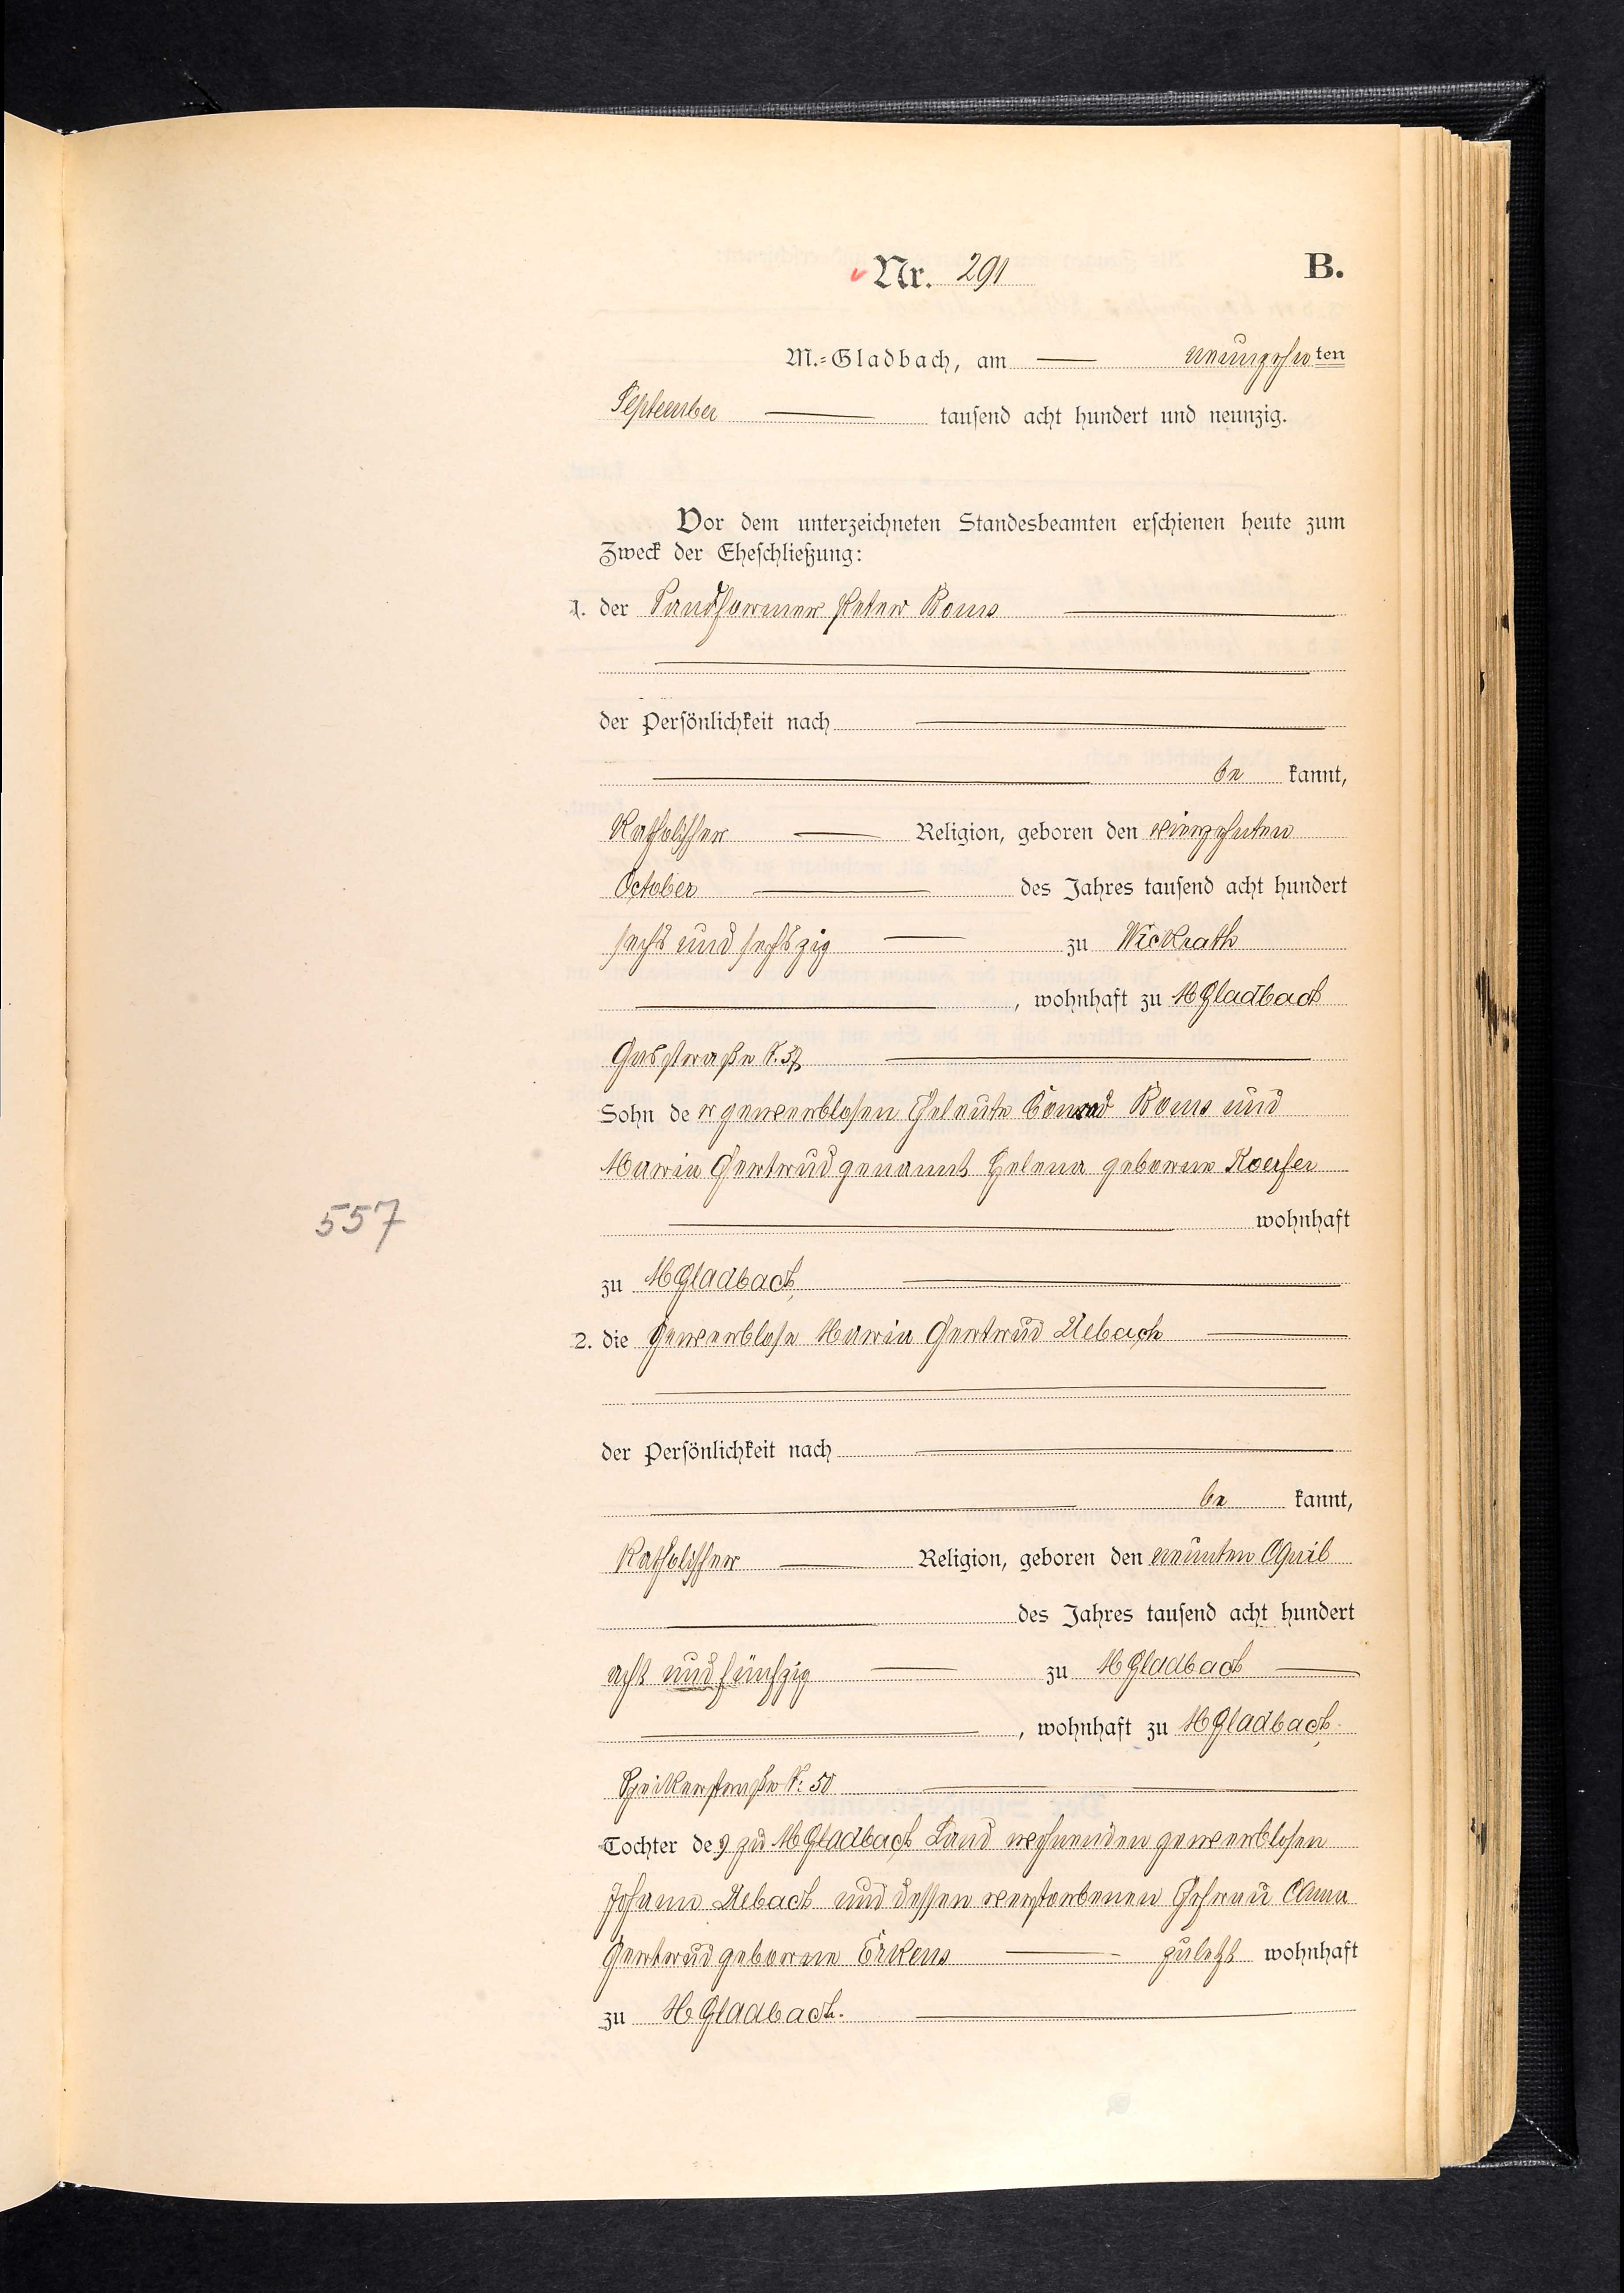 Nr. 291 B.
M.=Gladbach, am neunzehnten
September tausend acht hundert und neunzig.
Vor dem unterzeichneten Standesbeamten erschienen heute zum
Zweck der Eheschließung:
1. der Sandformer Peter Boms
der Persönlichkeit nach
be kannt,
Katholischer Religion, geboren den vierzehnten
October des Jahres tausend acht hundert
sechs und sechszig zu Wickrath
, wohnhaft zu MGladbach
Gasstraße N. 37,
Sohn der gewerblosen Eheleute Conrad Boms und
Maria Gertrud genannt Helena geborne Koerfer
wohnhaft
557
zu MGladbach,
2. die gewerblose Maria Gertrud Uebach
der Persönlichkeit nach
be kannt,
Katholischer Religion, geboren den neunten April
des Jahres tausend acht hundert
acht und fünfzig zu MGladbach
, wohnhaft zu MGladbach,
Speikerstraße N: 50
Tochter des zu MGladbach Land wohnenden gewerblosen
Johann Uebach und dessen verstorbenen Ehefrau Anna
Gertrud geborne Erkens zuletzt wohnhaft
zu MGladbach.